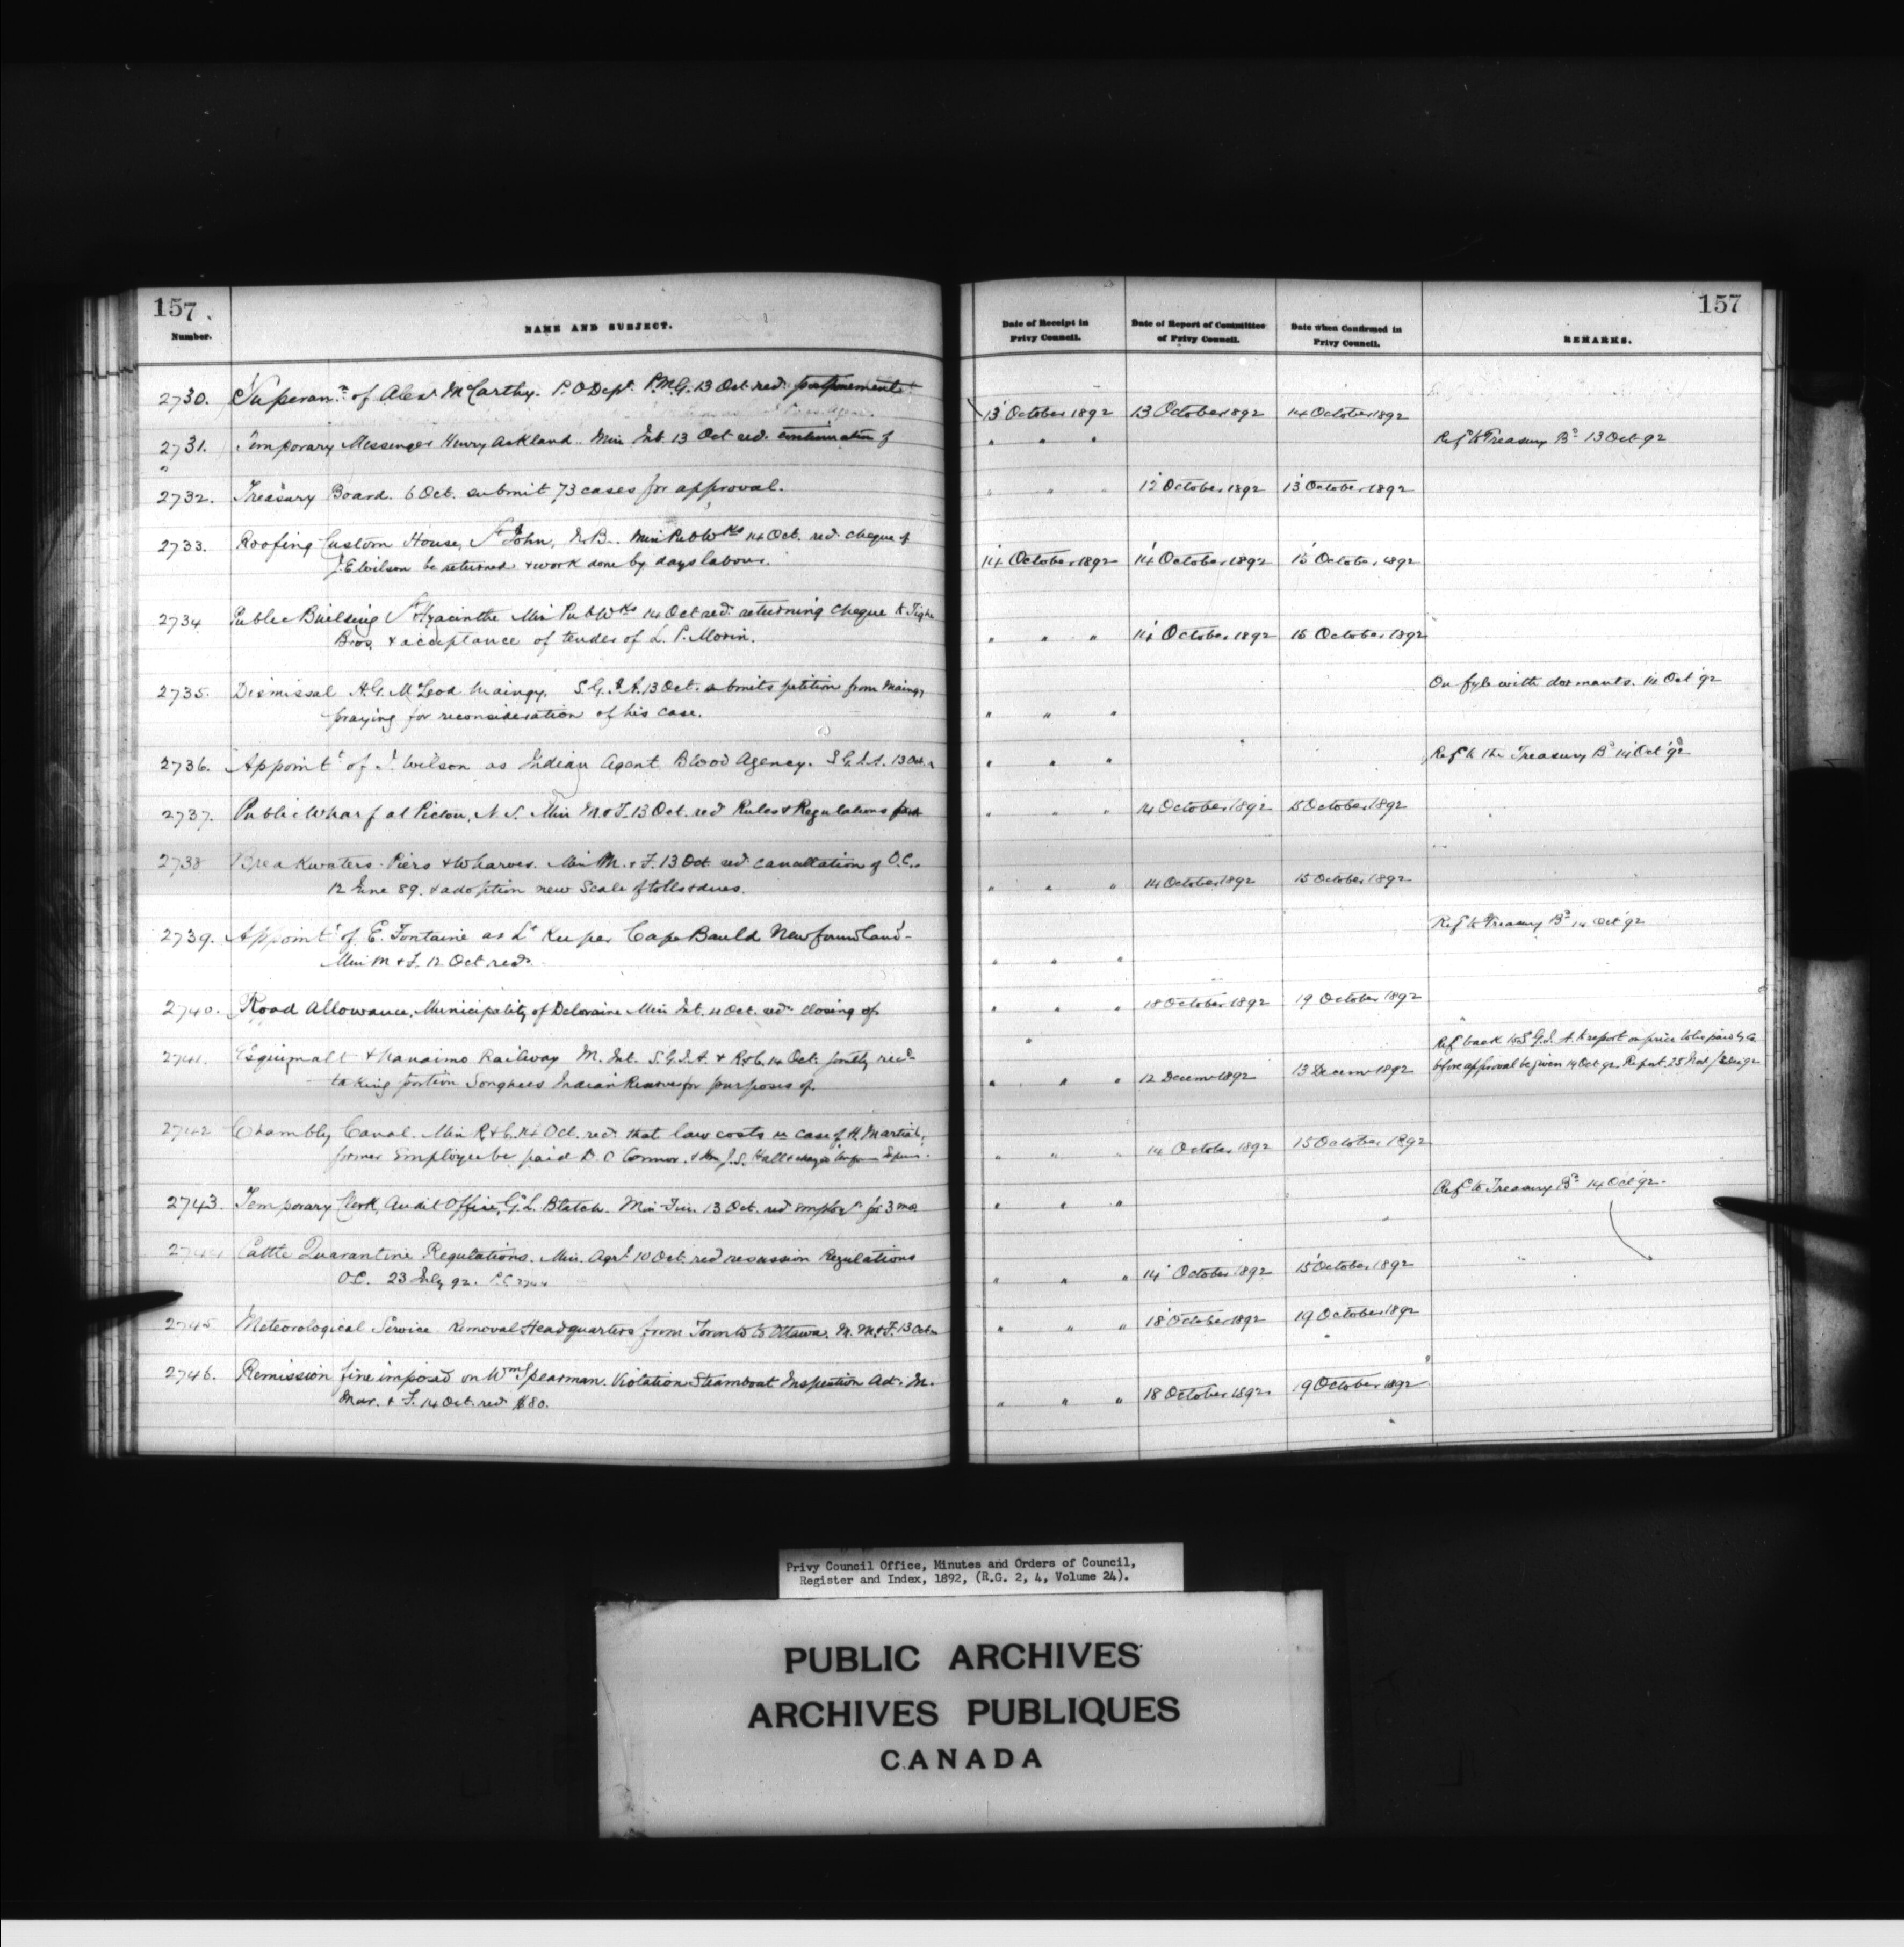 157
Number.
NAME AND SUBJECT.
Date of Receipt in Privy Council.
Date of Report of Committee of Privy Council.
Date when Confirmed in Privy Council.
REMARKS.
157
2730. Superan.n of Alexr McCarthy. P.O Dept. P.M.G. 13 Oct. recd. postponement
13 October 1892 13 October 1892 14 October 1892
2731. Temporary Messenger Henry Ackland. Min Int. 13 Oct recd. continuation of
" " " Refd to Treasury Bd 13 Oct 92
2732. Treasury Board. 6 Oct. submit 73 cases for approval.
" " " 12 October 1892 13 October 1892
2733. Roofing Custom House, St John, N.B. Min Pub Wks 14 Oct. recd. cheque of
J.E. Wilson be returned & work done by days labour.
14 October 1892 14 October 1892 15 October 1892
2734 Public Building St Hyacinthe Min Pub Wks 14 Oct recd. returning cheque to
Bros. & acceptance of tender of L. P. Morin.
" " " 14 October 1892 15 October 1892
2735. Dismissal H.G. McLeod Maingy. S.G.I.A. 13 Oct. submits petition from Maingy
praying for reconsideration of his case.
" " " On fyle with dormants. 14 Oct 92
2736. Appointt of J. Wilson as Indian Agent Blood Agency. S.G.I.A. 13 Oct.
" " " Refd to the Treasury Bd 14 Oct 92
2737. Public Wharf at Pictou, N.S. Min M & F. 13 Oct. recd Rules & Regulations for
" " " 14 October 1892 15 October 1892
2738 Breakwaters Piers & Wharves. Min M. & F. 13 Oct. recd. cancellation of O.C.
12 June 89. & adoption new Scale of tolls & dues.
" " " 14 October 1892 15 October 1892
2739. Appointt of E. Fontaine as Lt Keeper Cape Bauld Newfoundland
Min M & F. 12 Oct recd.
" " " Refd to Treasury Bd 14 Oct 92
2740. Road Allowance, Municipality of Deloraine Min Int. 11 Oct. recd. closing of
" " " 18 October 1892 19 October 1892
2741. Esquimalt & Nanaimo Railway M. Int. S.G.I.A. & R & C. 14 Oct. jointly recd.
taking portion Songhees Indian Reserve for purposes of
" " " 12 Decemr 1892 13 Decemr 1892
Refd back to S.G.I.A. to report on price to be paid by Co
before approval be given 14 Oct 92. Report 25 Nov / 92
2742 Chambly Canal. Min R & C. 14 Oct. recd. that law costs in case of H. Martial,
former Employee be paid D. O'Connor. & Hon J.S. Hall
" " " 14 October 1892 15 October 1892
2743. Temporary Clerk, Audit Office, G.L. Blatch. Min Fin. 13 Oct. recd employt for 3 mos
" " " Refd to Treasury Bd 14 Oct 92.
2744 Cattle Quarantine Regulations. Min. Agrl 10 Oct. recd rescission Regulations
O.C. 23 July 92. P.C. 2744
" " " 14 October 1892 15 October 1892
2745 Meteorological Service Removal Headquarters from Toronto to Ottawa. M. M & F. 13 Oct
" " " 18 October 1892 19 October 1892
2746. Remission fine imposed on Wm Spearman. Violation Steamboat Inspection Act. M.
Mar. & F. 14 Oct. recd. $80.
" " " 18 October 1892 19 October 1892
Privy Council Office, Minutes and Orders of Council,
Register and Index, 1892, (R.G. 2, 4, Volume 24).
PUBLIC ARCHIVES
ARCHIVES PUBLIQUES
CANADA